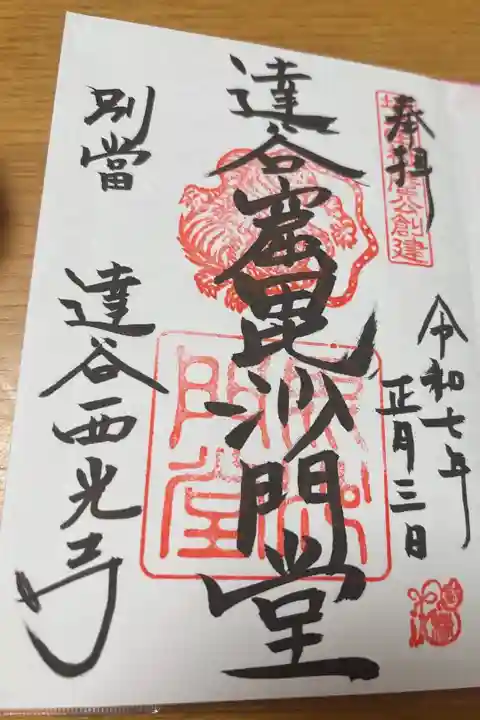 奉拝
公創建
令和七年
正月三日
達谷窟毘沙門堂
別當
達谷西光寺